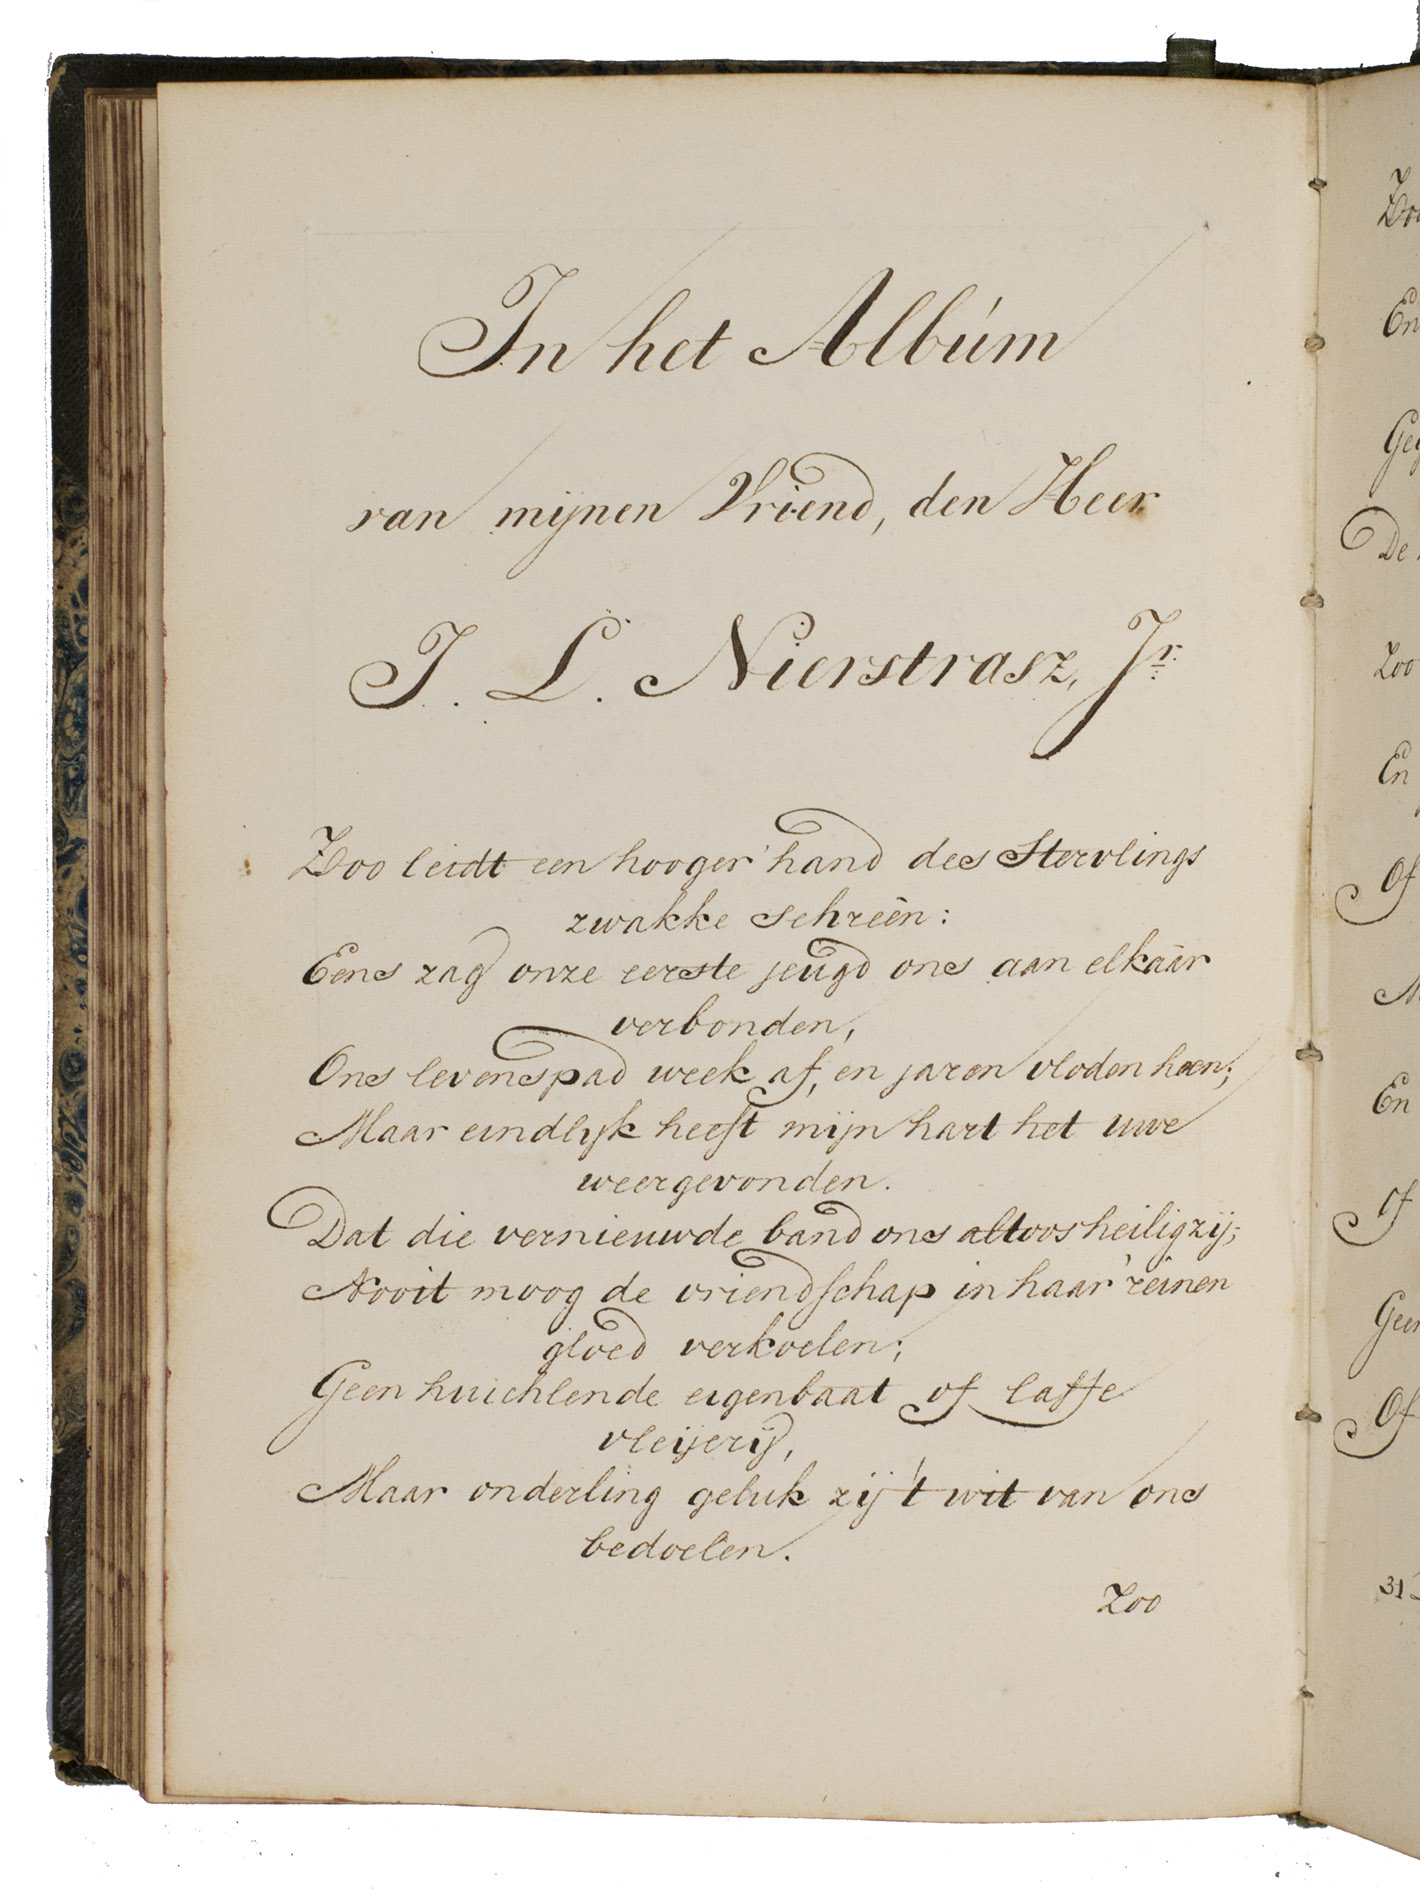 In het Albúm
van mijnen Vriend, den Heer
J. L. Nierstrasz, Jr.
Zoo leidt een hooger' hand des Stervlings
zwakke schreên:
Eens zag onze eerste jeugd ons aan elkaâr
verbonden,
Ons levenspad week af, en jaren vloden heen;
Maar eindlijk heeft mijn hart het uwe
weergevonden.
Dat die vernieuwde band ons altoos heilig zij;
Nooit moog de vriendschap in haar' reinen
gloed verkoelen;
Geen huichlende eigenbaat of laffe
vleijerij,
Maar onderling geluk zij 't wit van ons
bedoelen.
Zoo
Zoo
En
De
Zoo
En
Of
En
Of
Of
31